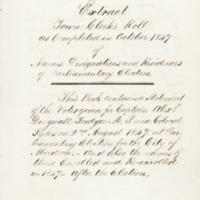 Extract
Town Clerk's Roll
as Completed in October 1847
of
Names, Designations and Residences
of Parliamentary Electors.
This Book contains a Statement
of the Votes given for Captain
Dingwall Fordyce R. N. and Colonel
Sykes on 3rd August 1847 at Par-
liamentary Election for the City of
Aberdeen - and also the names of
those Enrolled and Reenrolled
in 1847 - after the Election.